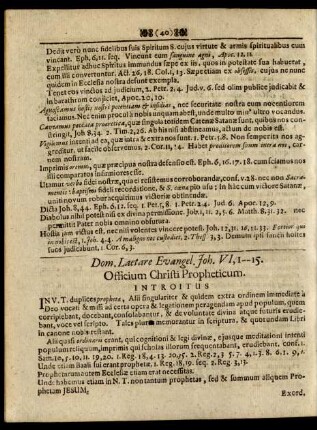 (40)
Dedit verò nunc fidelibus suis Spiritum S. cujus virtute & armis spiritualibus eum
vincant. Eph. 6, 11. seq. Vincunt eum sanguine agni, Apoc. 12, 11.
Expellitur adhuc Spiritus immundus sæpe ex iis, quos in potestate sua habuerat,
cum illi convertuntur. Act. 26, 18. Col. 1, 13. Sæpe etiam ex cujus ne nunc
quidem in Ecclesia nostra desunt exempla.
Tenet eos vinctos ad judicium, 2. Petr. 2, 4. Jud. v. 6. sed olim publicè judicabit &
in barathrum conjiciet, Apoc. 20, 10.
Agnoscamus hostis nostri potentiam & nec securitate nostra eum nocentiorem
faciamus. Nec enim procul à nobis unquam abest,
Caveamus peccata
stringit, Joh. 8, 34. 2. Tim. 2, 26. Ab his nisi abstineamus, actum de nobis est.
Vigilemus intenti ad ea, quæ intra & extra nos sunt. 1. Petr. 5, 8. Non semper
greditur, ut facile observemus, 2. Cor. 11, 14. Habet
carnem nostram.
Imprimis oremus, quæ præcipua nostra defensio est. Eph. 6, 16. 17. 18. cum sciamus nos
illi comparatos infirmiores esse.
Utamur verbo fidei nostræ, quasi resistemus corroborandæ, conf. v. 28. nec non Sacramentis:
baptismi fidei recordatione, & S. cœnæ pio usu; in hac cum victore Satanæ,
uniti novum robur acquirimus victoriæ obtinendæ.
Dicta Joh. 8, 44. Eph. 6, 12. seq. 1. Petr. 5, 8. 1. Petr. 3, 4. Jud. 6. Apoc. 12, 9.
Diabolus nihil potest nisi ex divina permissione. Job. 1, 11. 2, 6. Matth. 8, 31. 32. nec
permittit Pater nobis omnino obfutura.
Hostis jam victus est, nec nisi volentes vincere potest. 2. Joh. 12, 31. 16, 11. 33. Fortior qui
in nobis est, 1. Joh. 4, 4. A maligno nos custodiet, 2. Thess. 3, 3. Dæmon ipsi sancti hostes
suos judicabunt, 1. Cor. 6, 3.
Dom. Laetare Evangel. Joh. VI, 1–15.
Officium Christi Propheticum.
INTROITUS
IN V. T. duplices prophetæ, Alii singulariter & quidem extra ordinem immediatè à
Deo vocati & missi ad certa opera & legationem peragendam apud populum, quem
corripiebant, docebant, consolabantur, & de voluntate divina atque futuris erudiebant,
voce vel scripto. Tales plurimi memorantur in scriptura, & quorundam Libri
in canone nobis restant.
Alii quasi ordinarii erant, qui cognitioni & legi divinæ, ejusque meditationi intenti
populum religionem, imprimis qui scholas illorum frequentabant, erudiebant, conf. 1.
Sam. 10, 5. 10. 11. 19, 20. coll. 1. Reg. 18, 4. 13. 20, 35. 2. Reg. 2, 3. 5. 7. 4, 1. 3. 8. 6, 1. 9, 1.
Unde etiam Isaiæ sui erant prophetæ, 1. Reg. 18, 19. seq. 2. Reg. 3, 13.
Prophetarum autem Ecclesiæ etiam erat necessitas.
Unde habemus etiam in N. T. non tantum prophetas, sed & summum aliquem Prophetam
JESUM,
Exord.